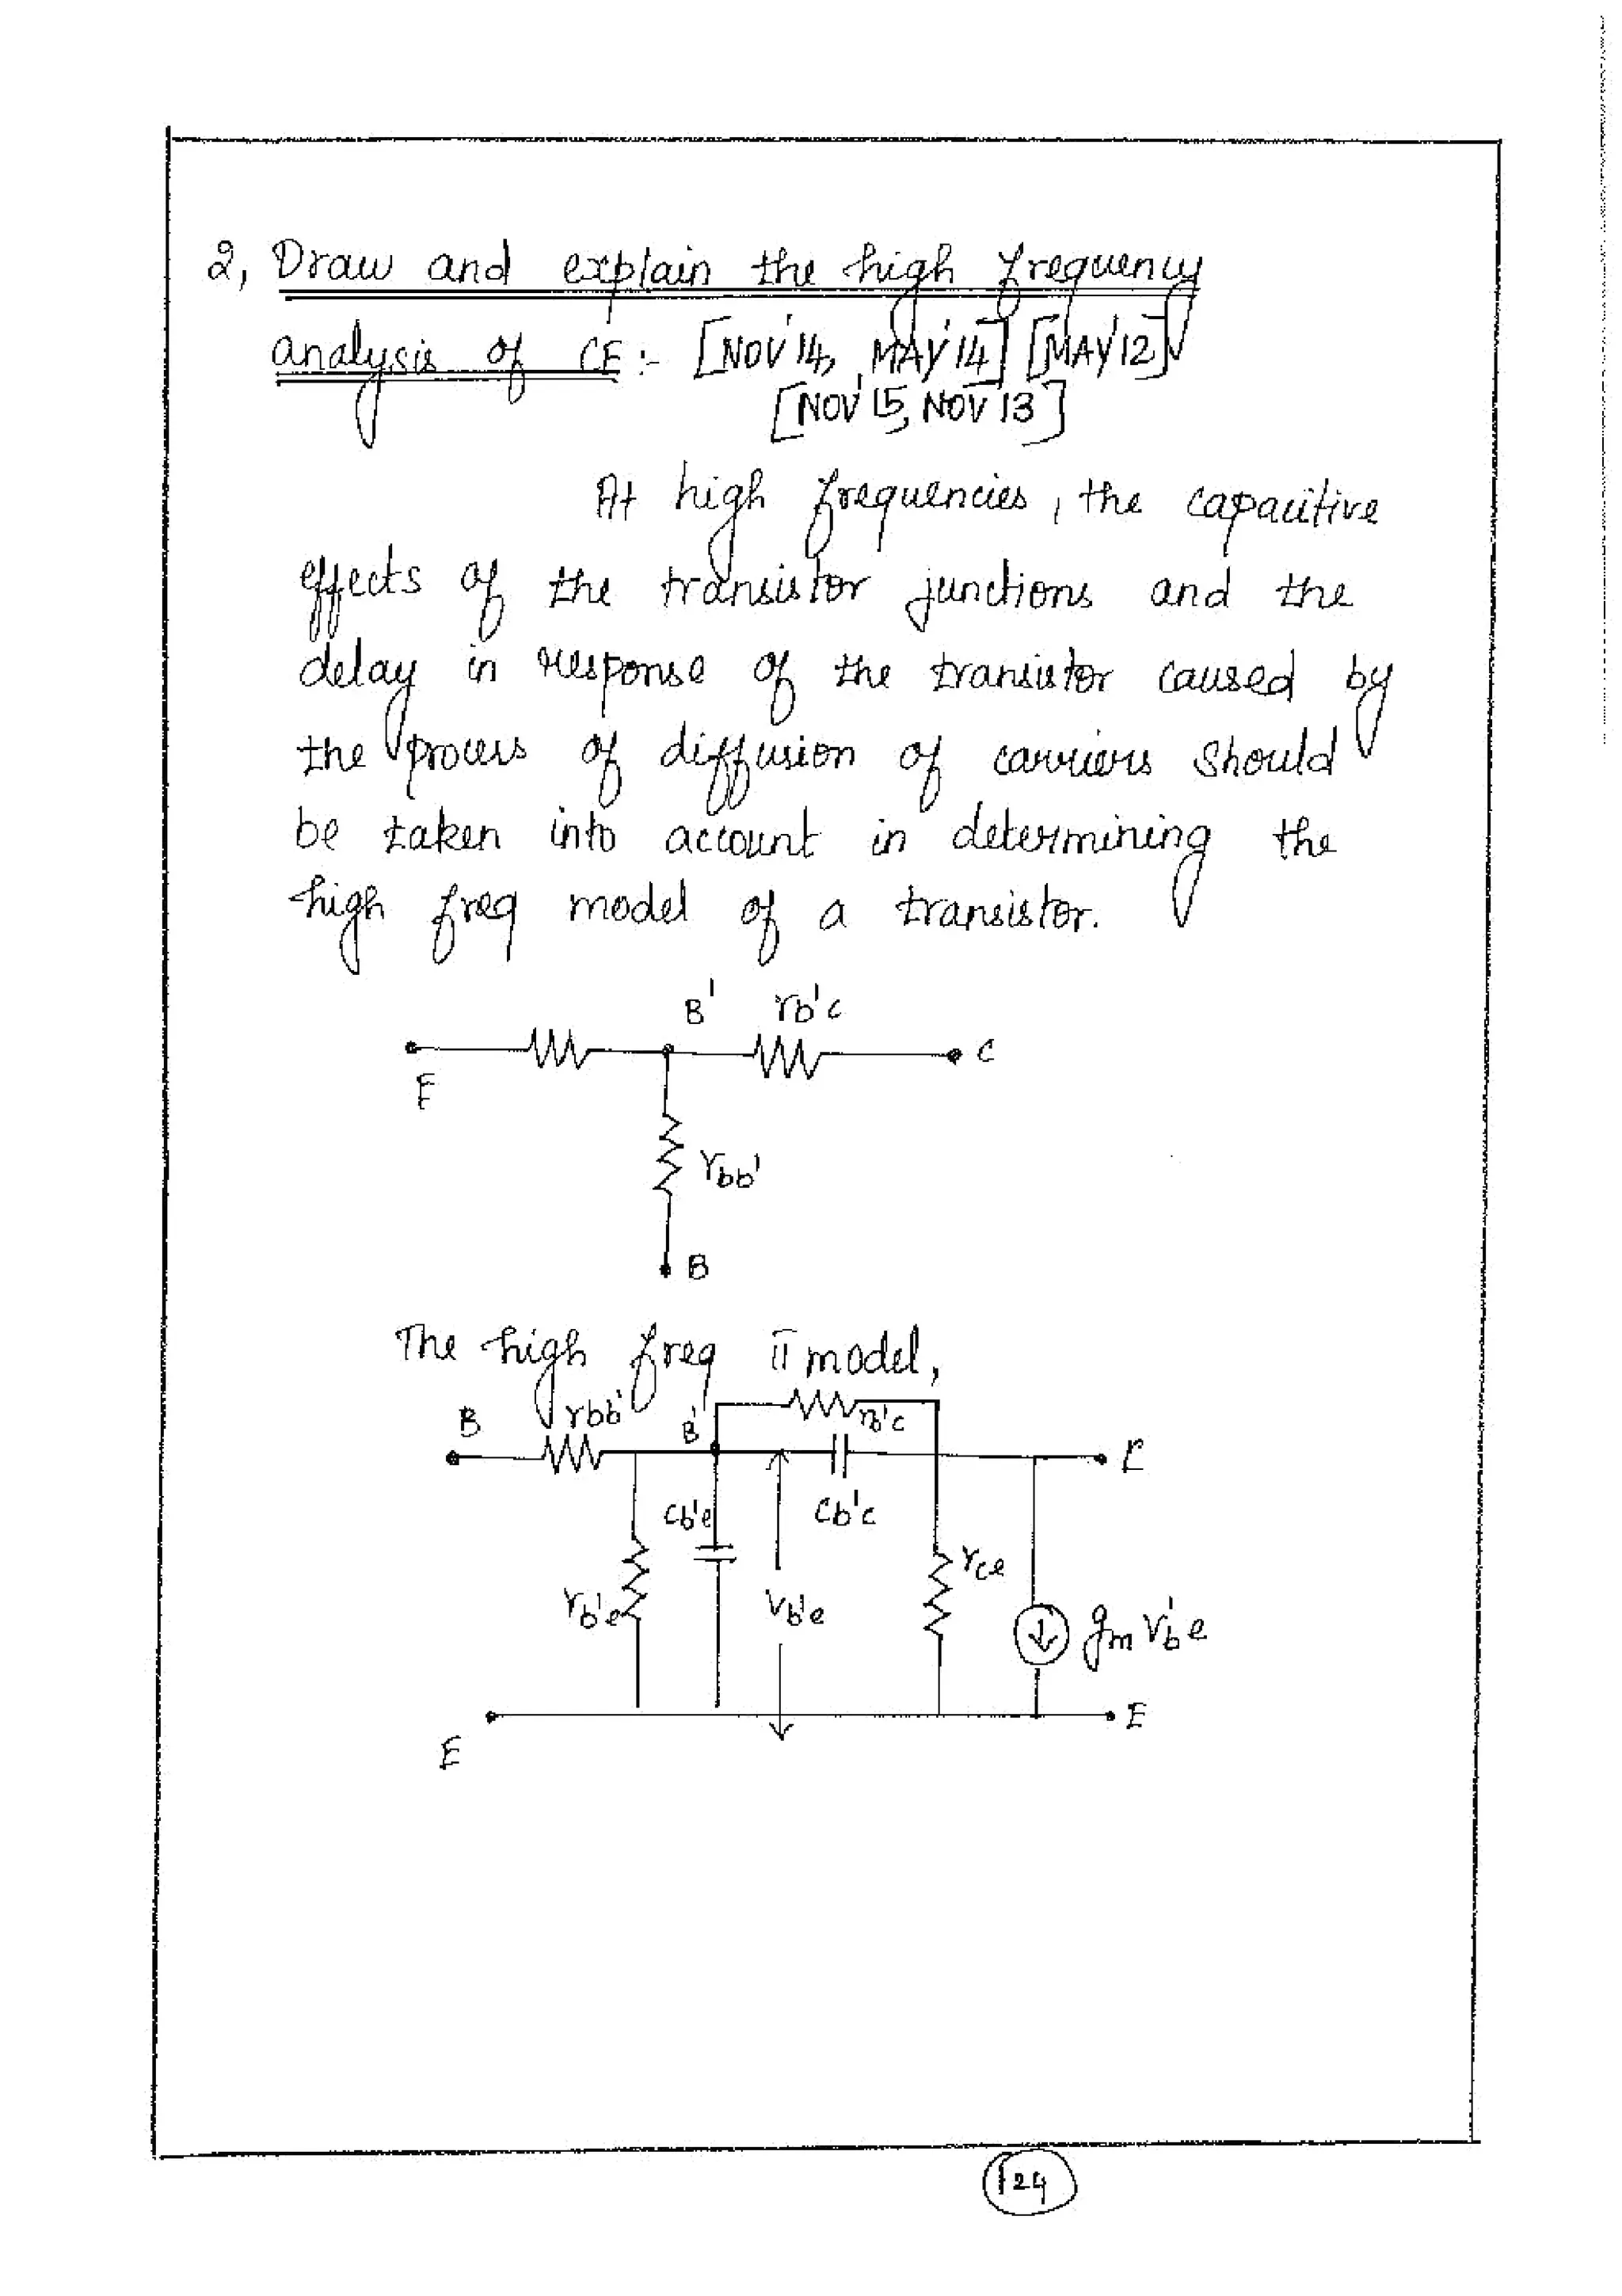 2, Draw and explain the high frequency
analysis of CE :- [NOV'14, MAY'14] [MAY'12]
[NOV'15, NOV'13]
At high frequencies, the capacitive
effects of the transistor junctions and the
delay in response of the transistor caused by
the process of diffusion of carriers should
be taken into account in determining the
high freq model of a transistor.
B' rb'c
C
E
rbb'
B
The high freq π model,
B rbb' B' rb'c
C
Cb'e Cb'c
rce
rb'e Vb'e
gm Vb'e
E
E
124